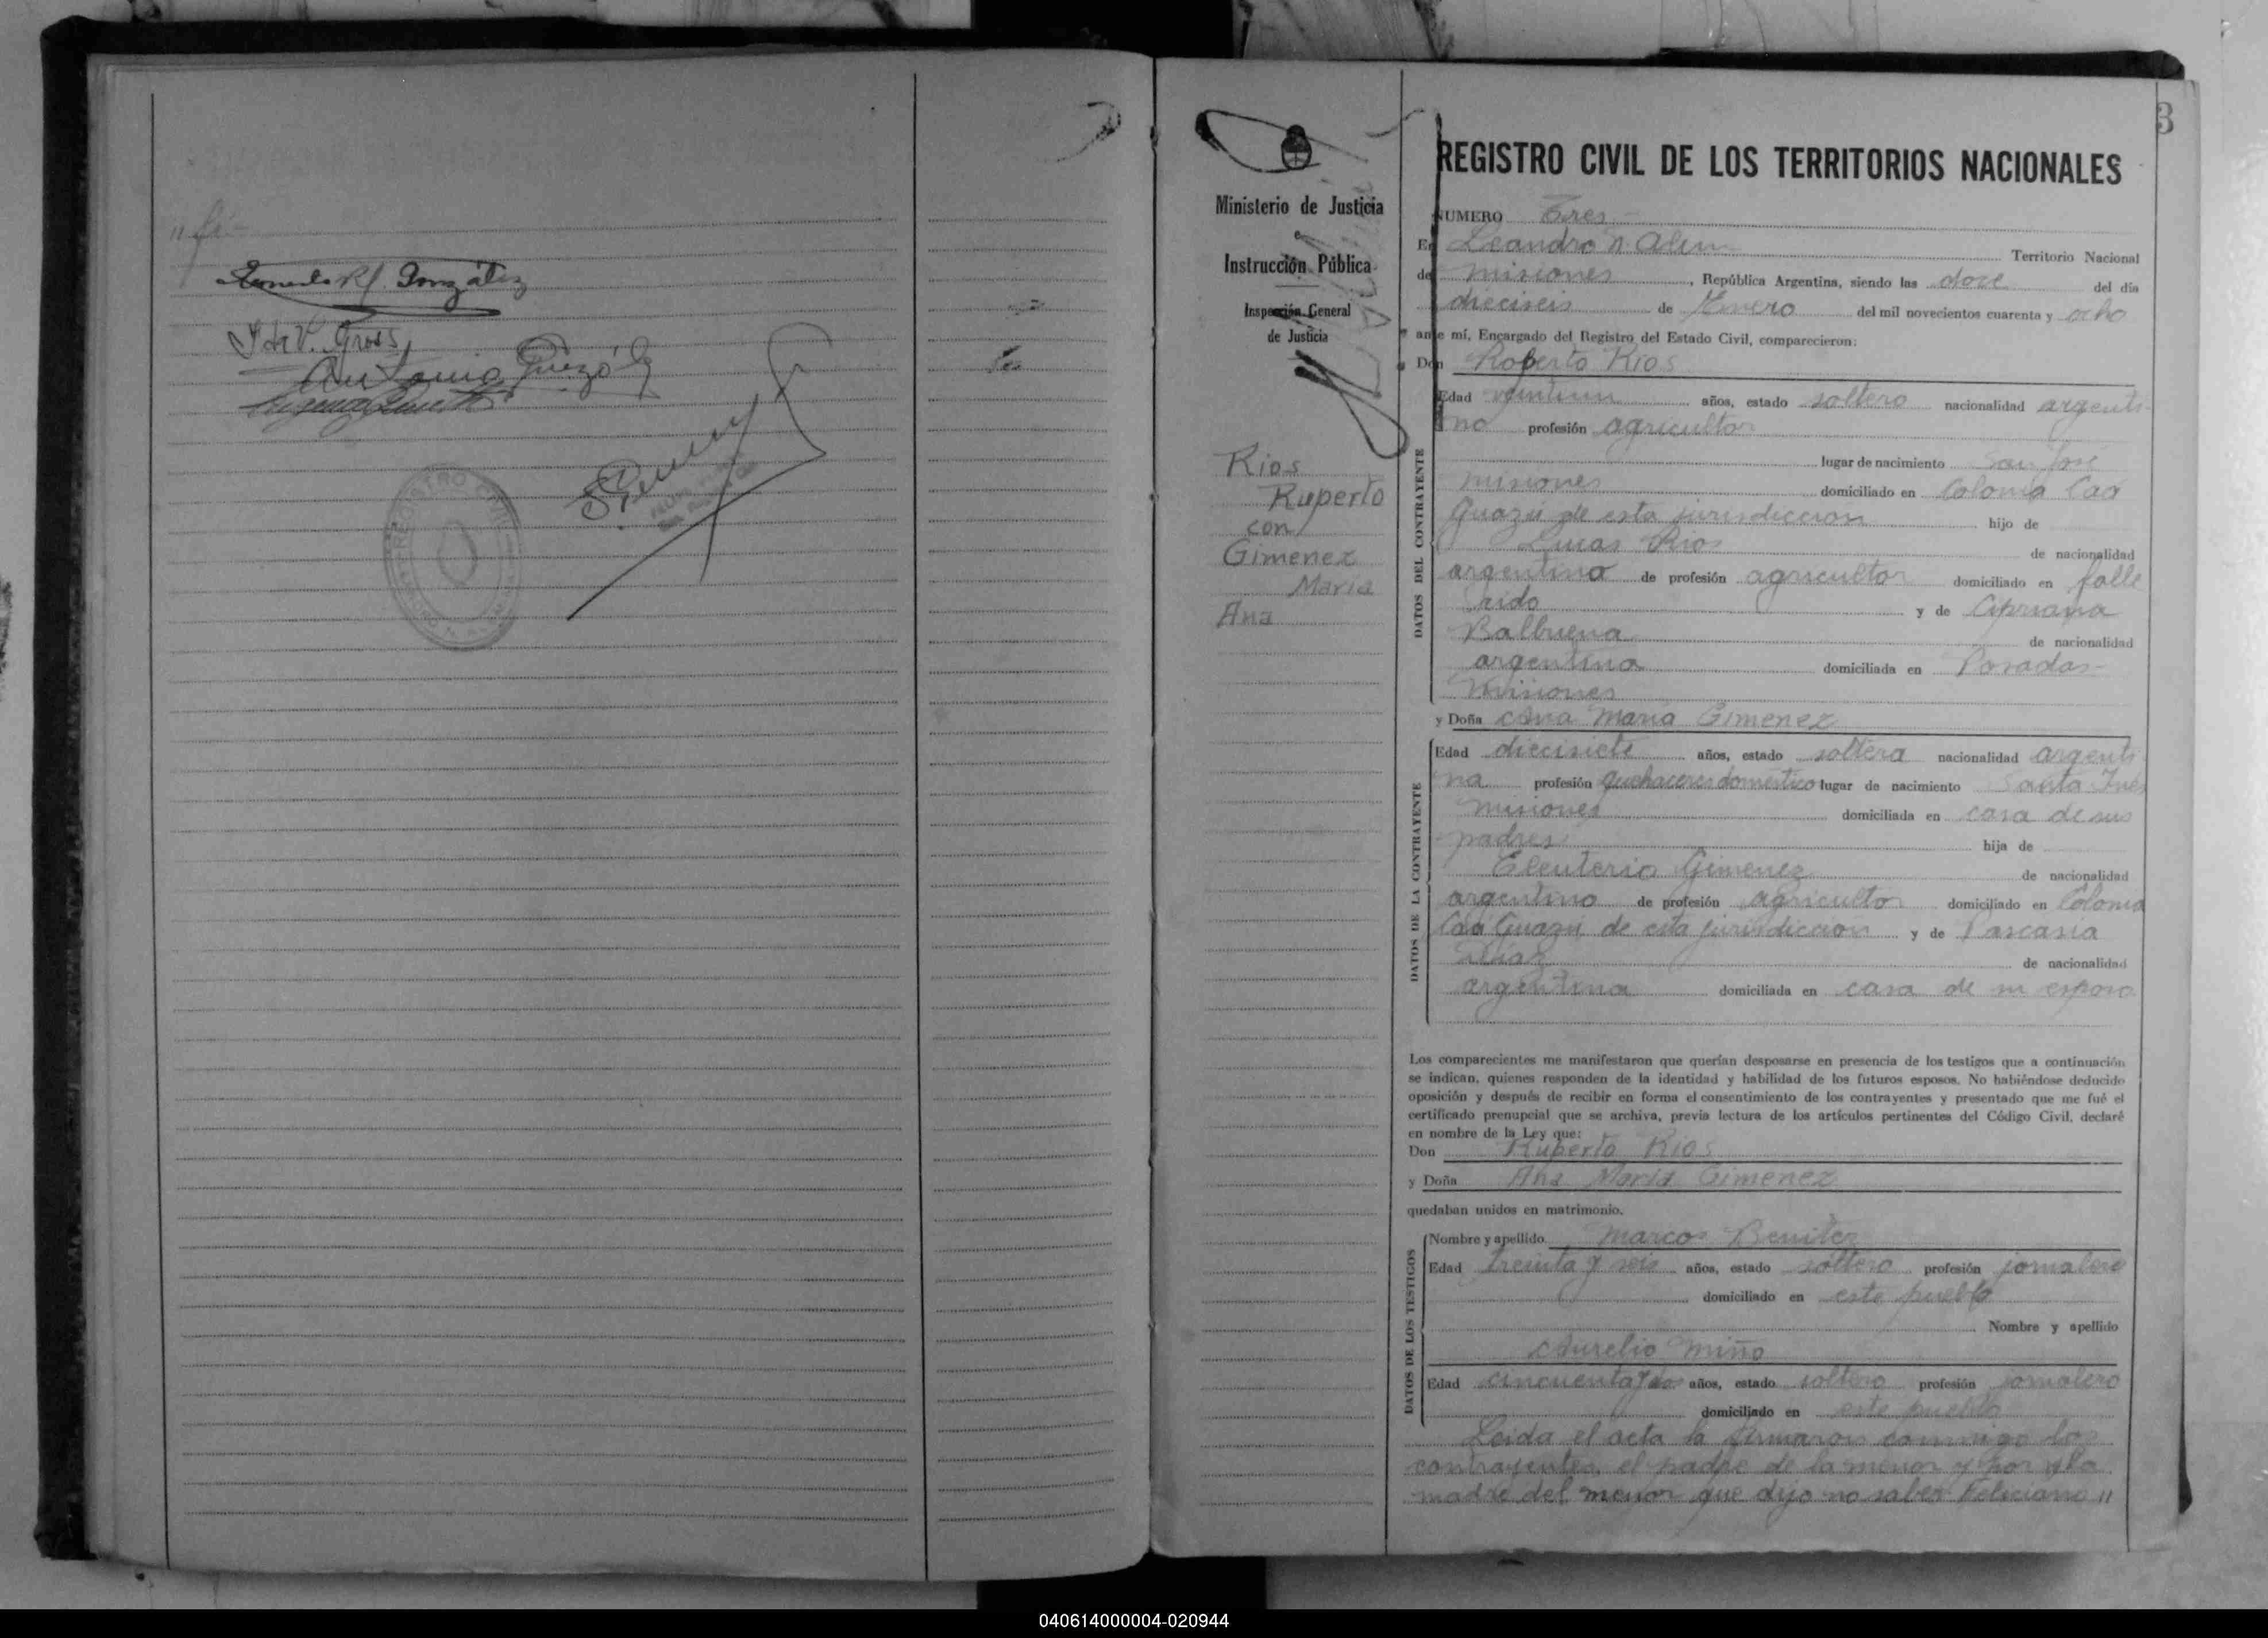 "fé-
González
Gross
Antonio
REGISTRO CIVIL
3
Ministerio de Justicia
Instrucción Pública
Inspección General
de Justicia
Rios
Ruperto
con
Gimenez
Maria
Ana
REGISTRO CIVIL DE LOS TERRITORIOS NACIONALES
NUMERO Tres-
En Leandro N. Alem Territorio Nacional
de Misiones, República Argentina, siendo las doce del día
dieciseis de Enero del mil novecientos cuarenta y ocho
ante mí, Encargado del Registro del Estado Civil, comparecieron:
Don Roberto Rios
Edad ventiun años, estado soltero nacionalidad argenti-
no profesión agricultor
lugar de nacimiento San José
Misiones domiciliado en Colonia Caá
Guazú de esta jurisdiccion hijo de
Lucas Rios de nacionalidad
argentino de profesión agricultor domiciliado en falle
cido y de Cipriana
Balbuena de nacionalidad
argentina domiciliada en Posadas-
Misiones
y Doña Ana Maria Gimenez
Edad diecisiete años, estado soltera nacionalidad argenti
na profesión quehaceres domestico lugar de nacimiento Santa Ines
Misiones domiciliada en casa de sus
padres hija de
Eleuterio Gimenez de nacionalidad
argentino de profesión agricultor domiciliado en Colonia
Caá Guazú de esta jurisdiccion y de Pascasia
Diaz de nacionalidad
argentina domiciliada en casa de su esposo
DATOS DEL CONTRAYENTE
DATOS DE LA CONTRAYENTE
Los comparecientes me manifestaron que querían desposarse en presencia de los testigos que a continuación
se indican, quienes responden de la identidad y habilidad de los futuros esposos. No habiéndose deducido
oposición y después de recibir en forma el consentimiento de los contrayentes y presentado que me fué el
certificado prenupcial que se archiva, previa lectura de los artículos pertinentes del Código Civil, declaré
en nombre de la Ley que:
Don Ruperto Rios
y Doña Ana Maria Gimenez
quedaban unidos en matrimonio.
DATOS DE LOS TESTIGOS
Nombre y apellido Marcos Benitez
Edad treinta y seis años, estado soltero profesión jornalero
domiciliado en este pueblo
Nombre y apellido
Aurelio Miño
Edad cincuenta y dos años, estado soltero profesión jornalero
domiciliado en este pueblo
Leida el acta la firmaron conmigo los
contrayentes, el padre de la menor y por la
madre del menor que dijo no saber Feliciano "
040614000004-020944